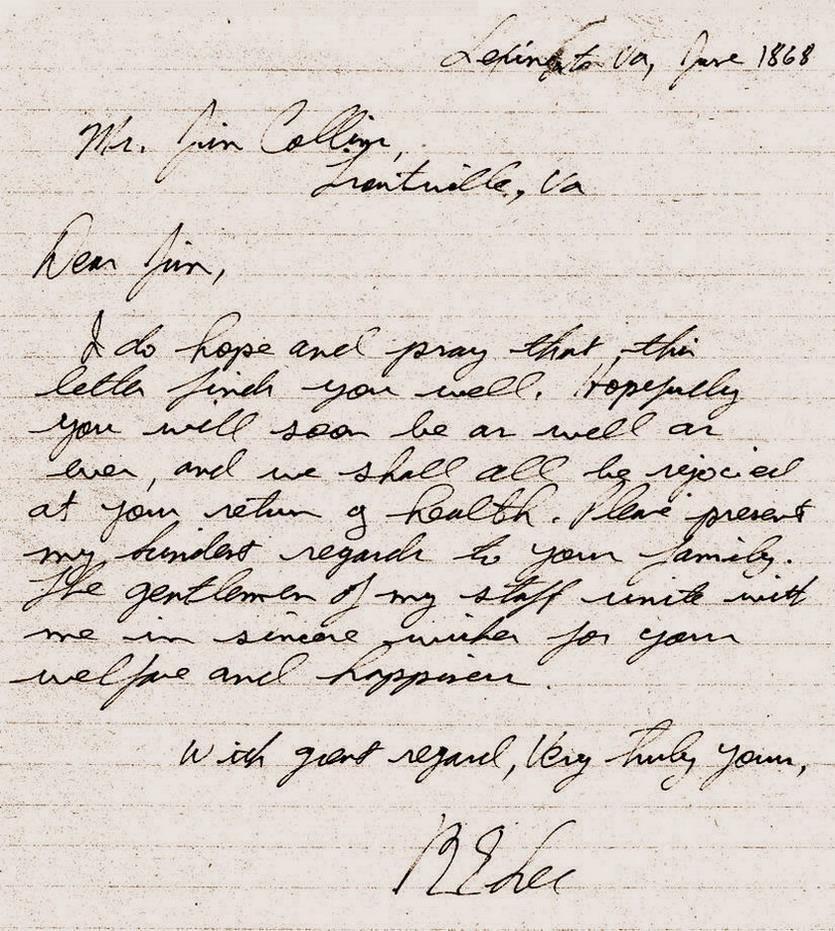 Lexington Va, June 1868
Mr. Jim Collins,
Troutville, Va
Dear Jim,
I do hope and pray that this
letter finds you well. Hopefully
you will soon be as well as
ever, and we shall all be rejoiced
at your return of health. Please present
my kindest regards to your family.
The gentlemen of my staff unite with
me in sincere wishes for your
welfare and happiness.
With great regard, Very truly yours,
R E Lee